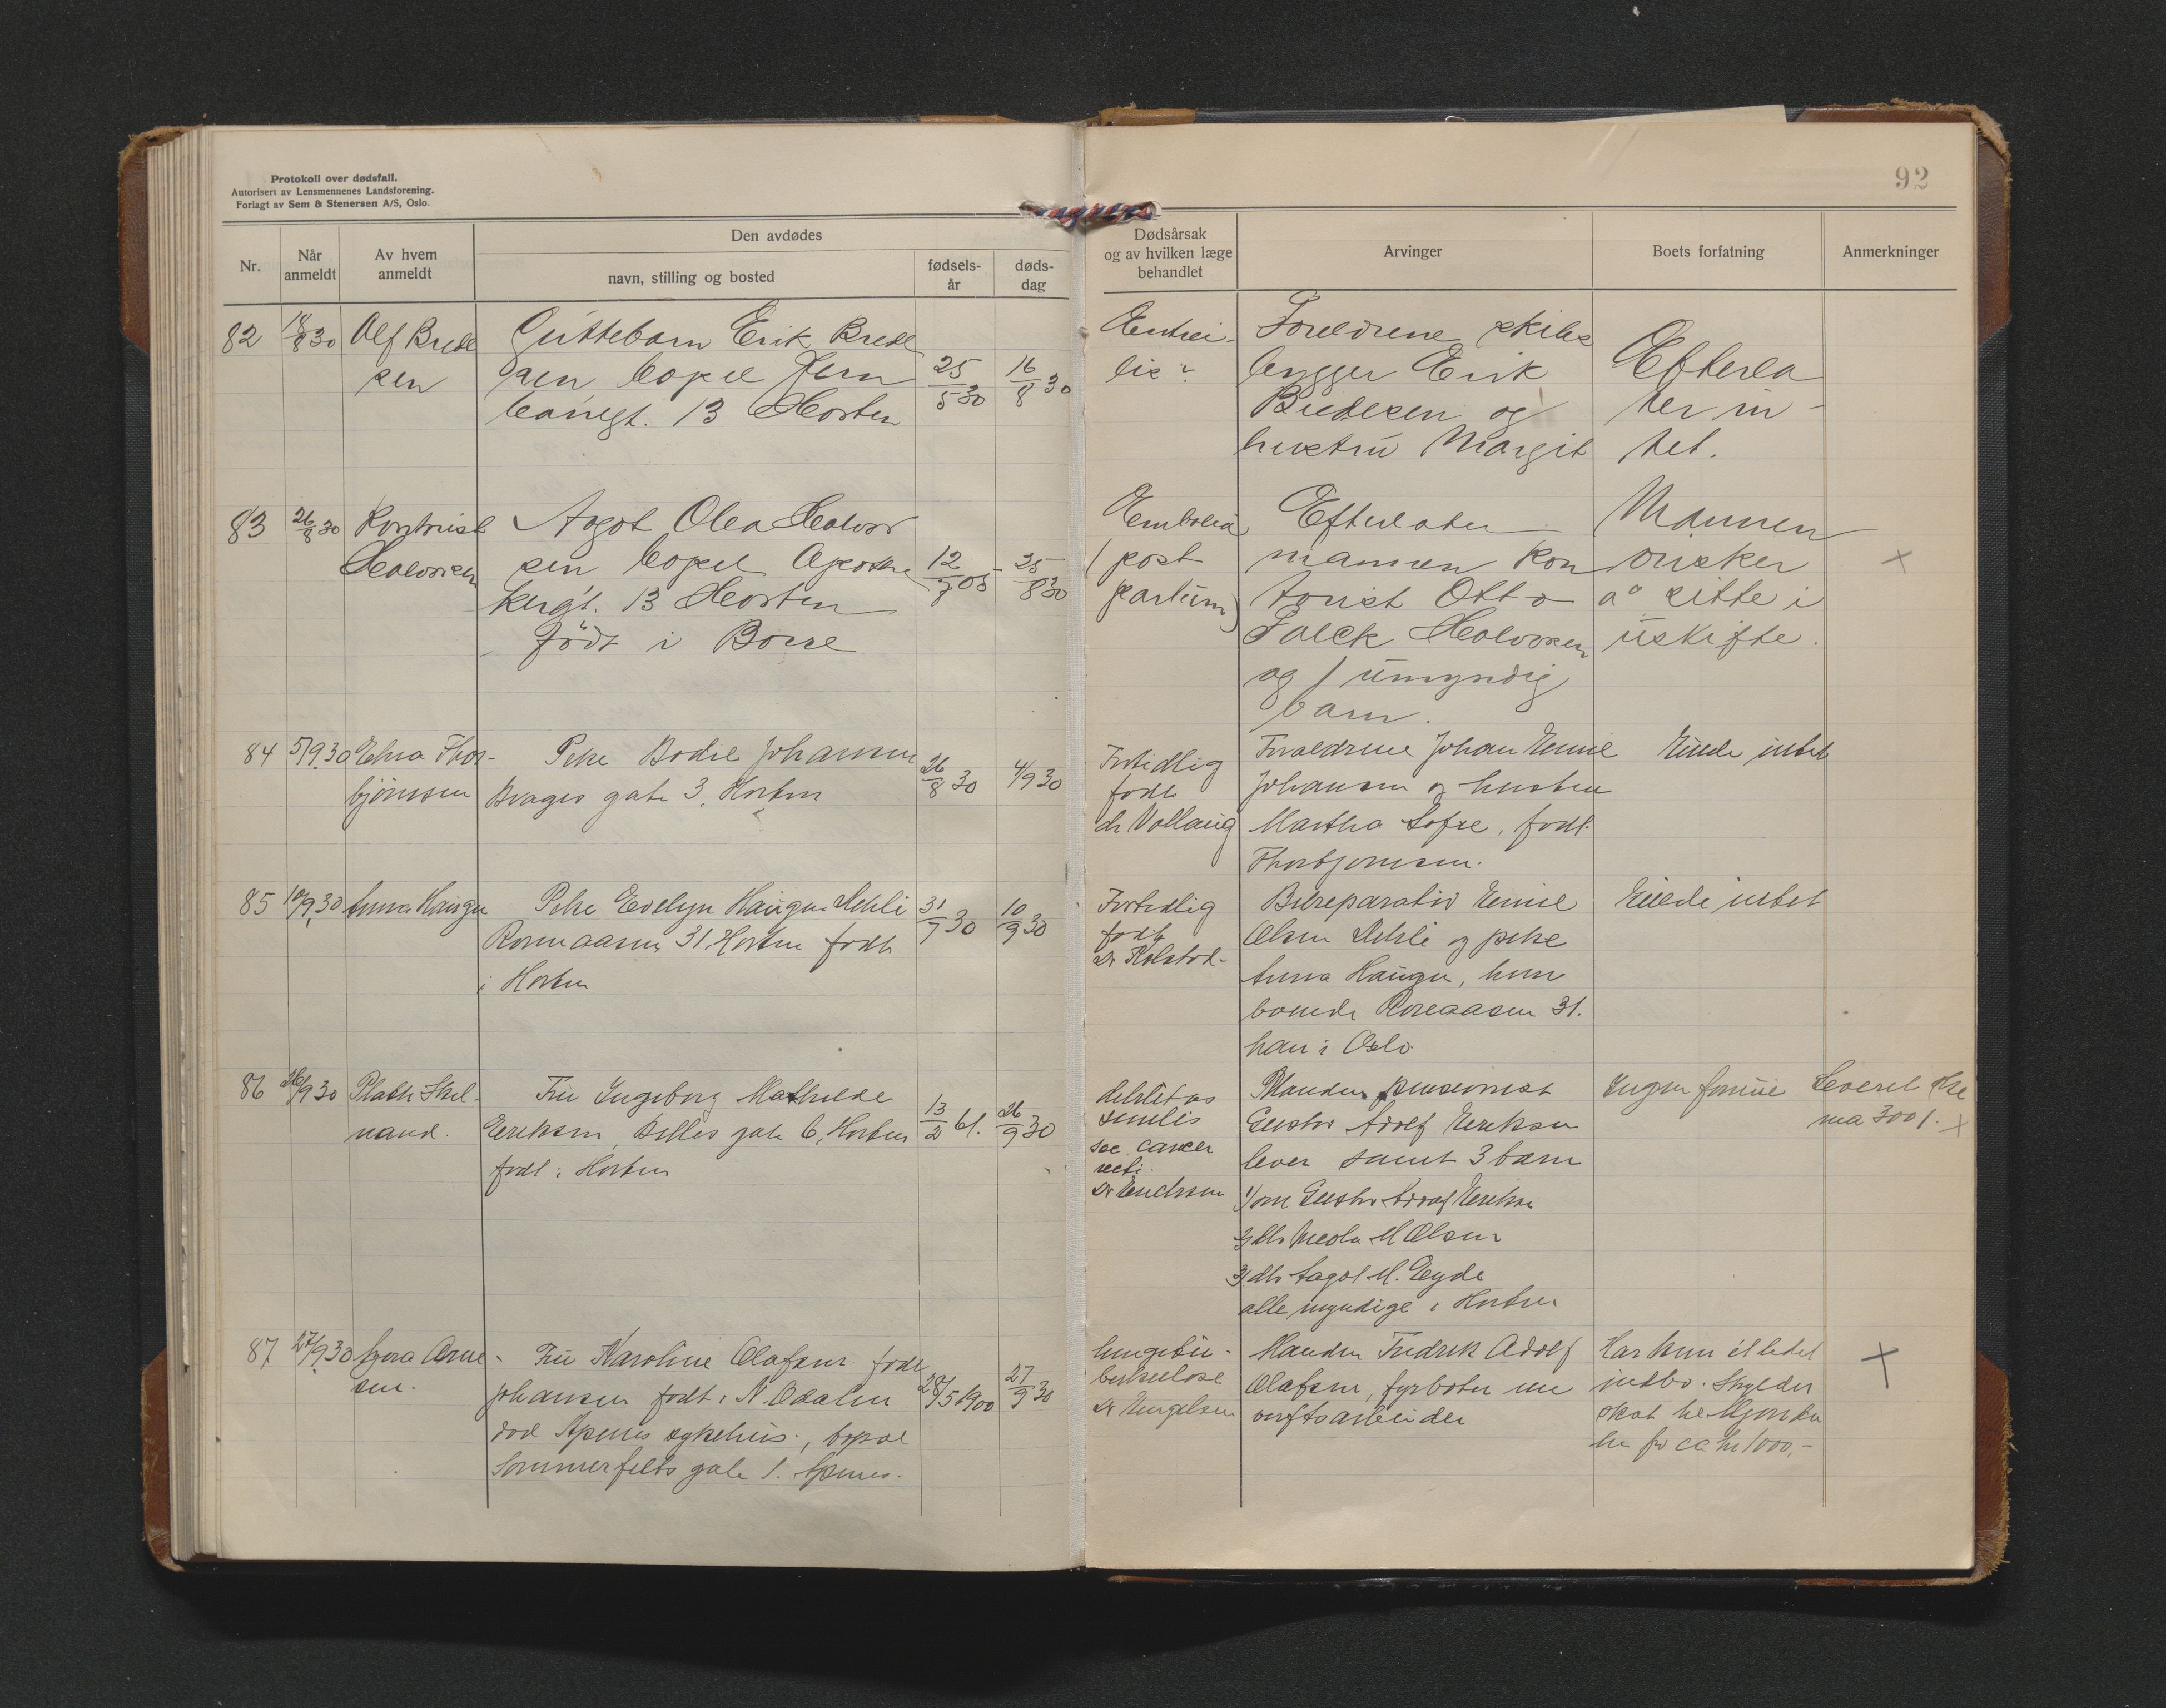 Protokoll over dødsfall.
Autorisert av Lensmennenes Landsforening.
Forlagt av Sem & Stenersen A/S, Oslo.
92
Nr.
Når anmeldt
Av hvem anmeldt
Den avdødes
navn, stilling og bosted
fødsels-år
døds-dag
Dødsårsak og av hvilken læge behandlet
Arvinger
Boets forfatning
Anmerkninger
82
18/8 30
Olf Brede
sen
Guttebarn Erik Brede
sen bopel Jern
banegt. 13 Horten
25/5 30
16/8 30
Foreldrene skibs
bygger Erik
Bredesen og
hustru Margit
Efterla
ter in-
tet.
83
26/8 30
Kontorist
Halvorsen
Aagot Olea Halvor
sen bopel Apothe
kergt. 13 Horten
født i Borre
12/7 05
25/8 30
Embolia
(post
partum)
Efterlater
mannen kon
torist Otto
Falck Halvorsen
og 1 umyndig
barn.
Mannen
ønsker
å sitte i
uskifte.
x
84
5/9.30
Elna Thor-
bjørnsen
Pike Bodil Johansen
Brages gate 3, Horten
26/8 30
4/9 30
Fortidlig
født
dr Vollaug
Foraldrene Johan Emil
Johansen og hustru
Martha Sofie, født
Thorbjørnsen.
Eiede intet
85
10/9.30
Anna Haugen
Pike Evelyn Haugen Dehli
31 Horten født
i Horten
31/7 30
10/9 30
Fortidlig
født
Dr Kolstad-
Bilreparatør Emil
Olsen Dehli og pike
Anna Haugen, hun
boende 31.
han i Oslo.
Eiede intet
86
26/9 30
Skel-
Fru Ingeborg Mathilde
Eriksen, Billes gate 6, Horten
født i Horten
13/2 61.
26/9 30
senilis
sec. cancer
recti.
Manden pensionist
Gustav Adolf Eriksen
lever samt 3 barn
1/ søn Gustav Adolf Eriksen
2/ dtr M Olsen
3/ dtr Aagot M. Eyde
alle myndige i Horten
Ingen formue
Leveret ske
ma 3001.
x
87
27/9.30
Arne-
sen.
Fru Karoline Olafsen født
Johansen født i N Odalen
død Apenes sykehus, bopæl
Sommerfelts gate 1. Apenes.
28/5 1900
27/9 30
lungetu-
berkulose
Dr Engelsen
Manden Fredrik Adolf
Olafsen, fyrbøter nu
verftsarbeider
Har kun et litet
indbo. Skylder
skat
kr for ca kr 1000,-
x